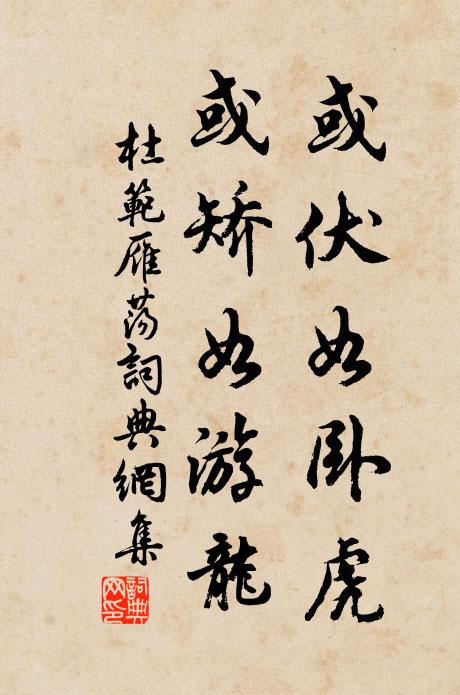 或伏如卧虎
或矫如游龍
杜範雁荡詞典網集
詞典网印